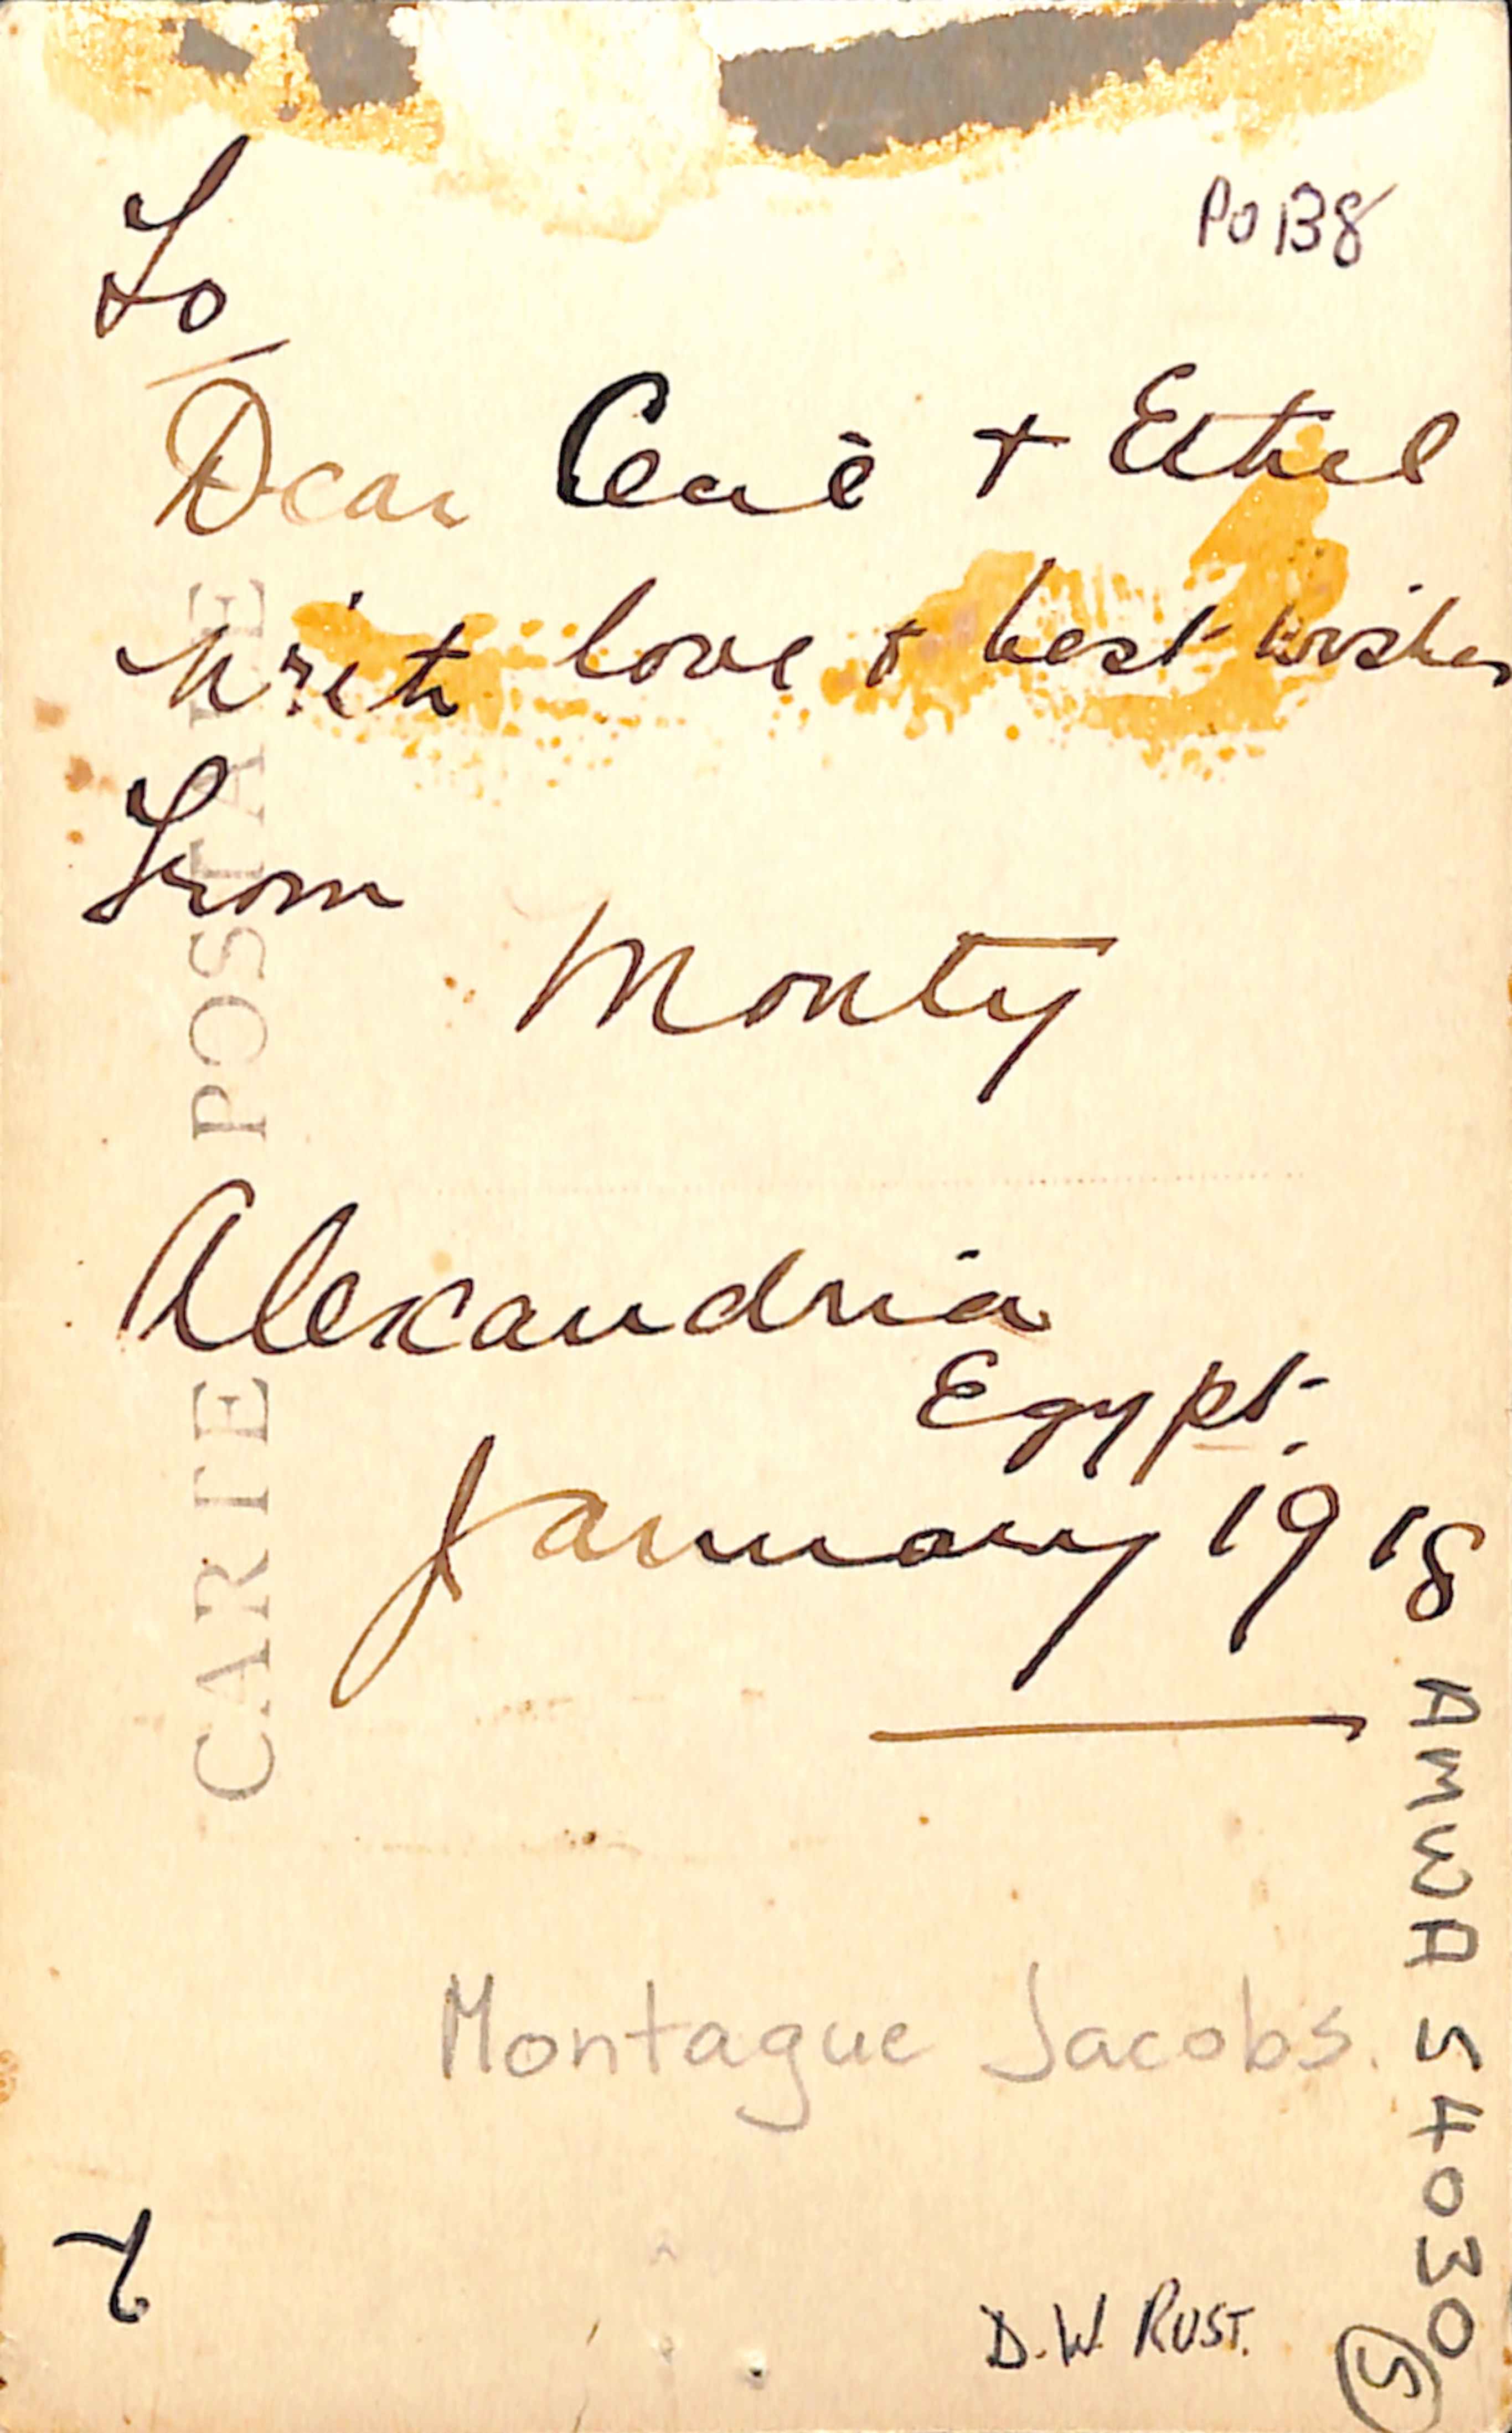 PO 138
To
Dear & Ethel
With love & best wishes
from
Monty
Alexandria
Egypt.
January 1918
Montague Jacobs.
D.W RUST.
CARTE POSTALE
AMWA S4030
5